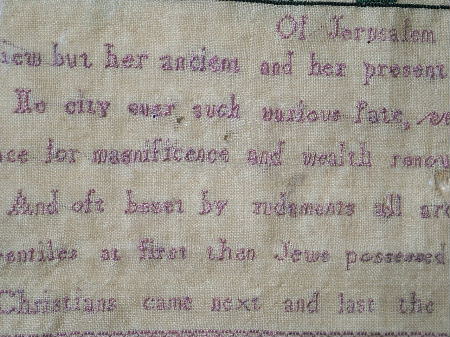 Of Jerusalem
iew but her ancient and her present
No city ever such various Fate,
ce for magnificence and wealth renou
And oft beset by all aro
entiles at first then Jews possessed
Christians came next and last the